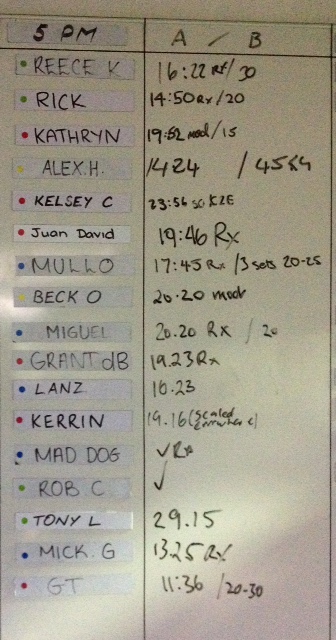 5 PM A / B
REECE K 16:22 RX/30
RICK 14:50 Rx/20
KATHRYN 19:52 mod/15
ALEX.H. 1424 /45
KELSEY C 23:56
Juan David 19:46 Rx
MULLO 17:45 Rx /3 sets 20-25
BECK O 20.20 mod
MIGUEL 20.20 RX / 20
GRANT dB 19.23 Rx
LANZ 16.23
KERRIN 19.16 (Scaled
MAD DOG ✓ Rx
ROB C ✓
TONY L 29.15
MICK. G 13.25 RX
GT 11:36 /20-30